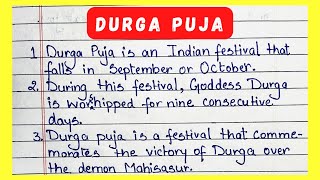 DURGA PUJA
1. Durga Puja is an Indian festival that
falls in September or October.
2. During this festival, Goddess Durga
is worshipped for nine consecutive
days.
3. Durga puja is a festival that comme-
morates the victory of Durga over
the demon Mahisasur.